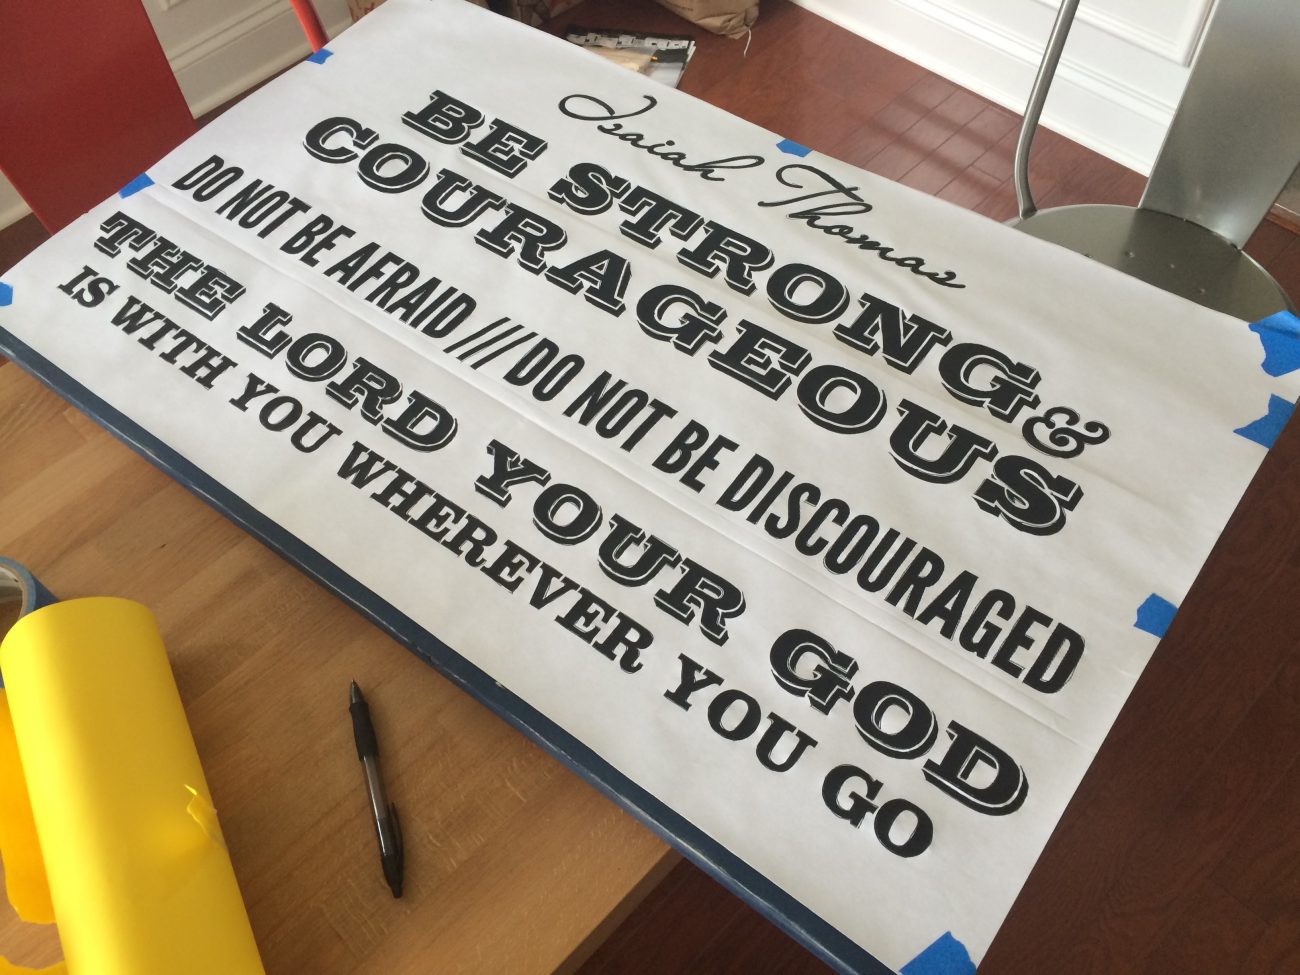 Isaiah Thomas
BE STRONG &
COURAGEOUS
DO NOT BE AFRAID /// DO NOT BE DISCOURAGED
THE LORD YOUR GOD
IS WITH YOU WHEREVER YOU GO